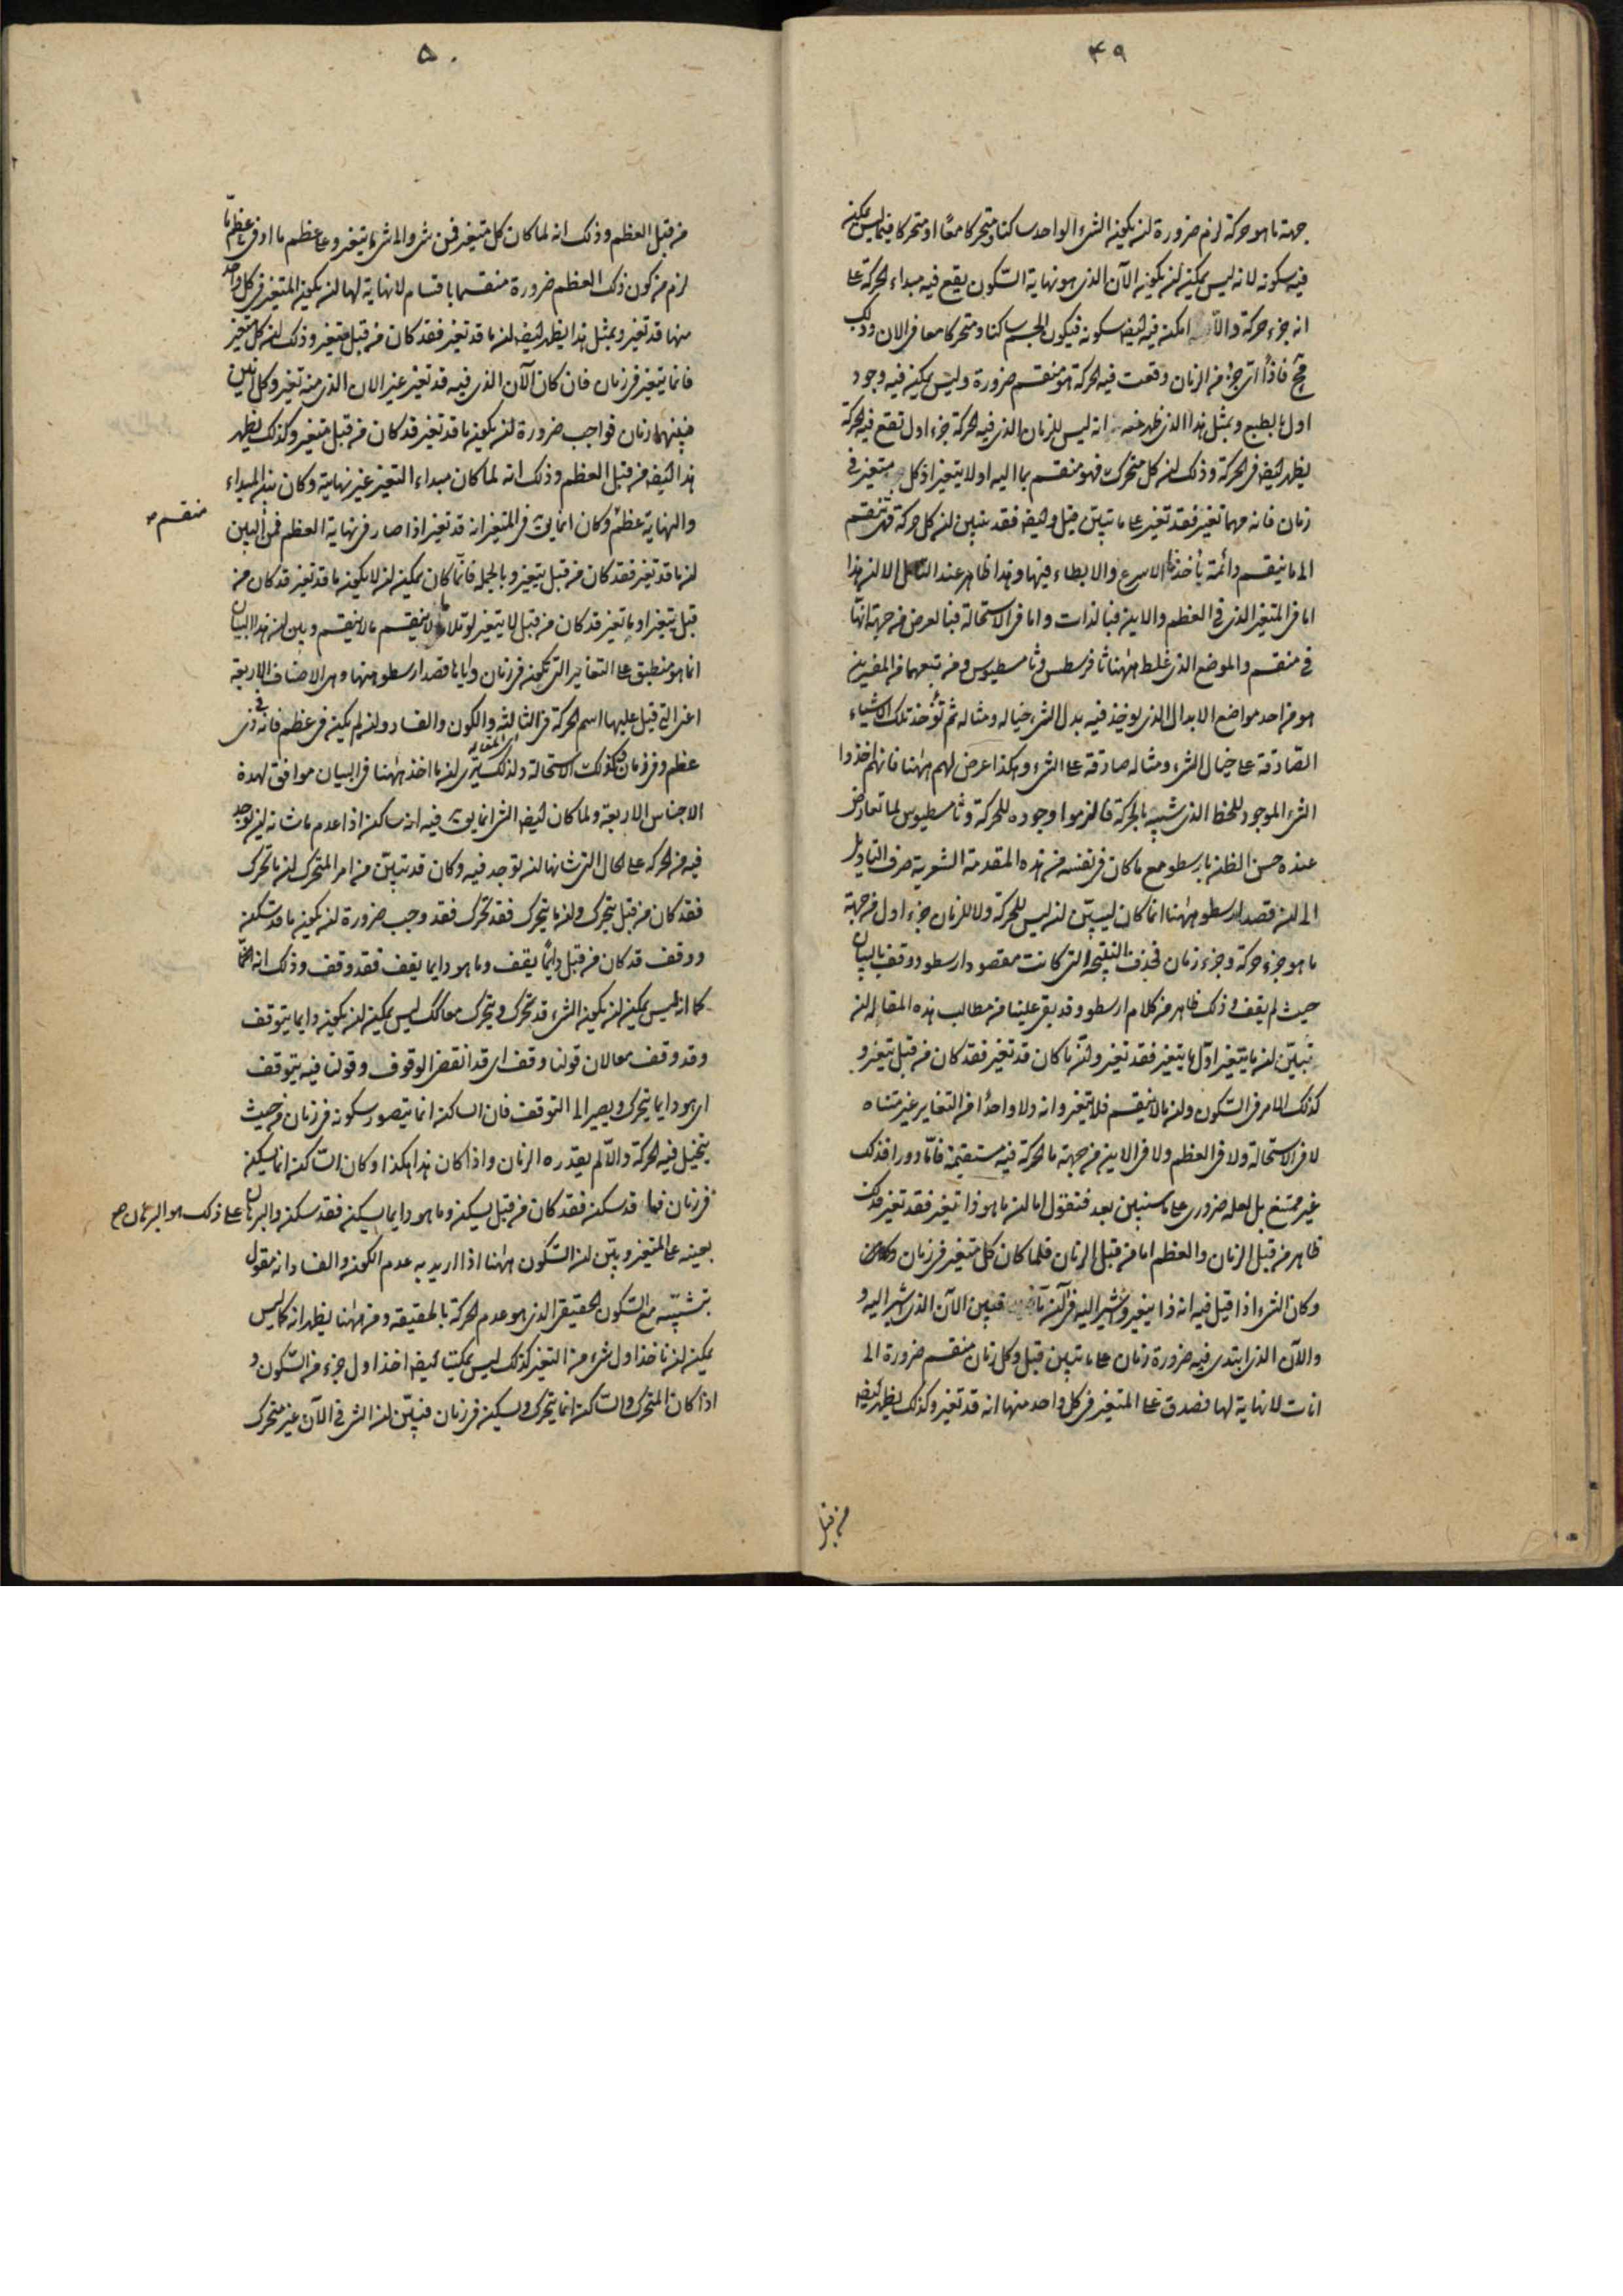 ٤٩
جهة ما هو حركة لزم ضرورة ان يكون الشىء الواحد ساكنا ومتحركا معًا او متحركا فيما ليس يمكن
فيه سكونه لانه ليس يمكن ان يكون الآن الذى هو نهاية السكون يقع فيه مبداء الحركة على
انه جزء حركة والا امكن فيه ايضا سكونه فيكون الجسم ساكنا ومتحركا معا فى الان وذلك
مح فاذًا اى جزء من الزمان وقعت فيه الحركة هو منقسم ضرورة وليس يمكن فيه وجود
اول بالطبع وبمثل هذا الذى ظهر منه انه ليس للزمان الذى فيه الحركة جزء اول تقع فيه الحركة
يظهر ايضا فى الحركة وذلك ان كل متحرك فهو منقسم بما اليه اولا يتغير اذ كل متغير فى
زمان فانه مهما تغير فقد تغير على ما تبين قبل وايضا فقد تبين ان كل حركة فهى تنقسم
الى ما ينقسم دائما الاسرع والابطاء فيها وهذا ظاهر عند التأمل الا ان هذا
اما فى المتغير الذى فى العظم والاين فبالذات واما فى الاستحالة فبالعرض من جهة انها
فى منقسم والموضع الذى غلط ههنا ثاوفرسطس وثامسطيوس ومن تبعهما من المفسرين
هو من احد مواضع الابدال الذى يوخذ فيه بدل الشىء خياله ومثاله ثم تؤخذ تلك الاشياء
الصادقة على خيال الشىء ومثاله صادقة على الشىء وهكذا عرض لهم ههنا فانهم اخذوا
الشىء الموجود للخط الذى شبيه بالحركة فالزموا وجوده للحركة وثامسطيوس لما تعارض
عنده حسن الظن بارسطو مع ما كان فى نفسه من هذه المقدمة الشعرية صرف التاويل
الى ان قصد ارسطو ههنا انما كان ليبين ان ليس للحركة ولا للزمان جزء اول من جهة
ما هو جزء حركة وجزء زمان فحذف النتيجة التى كانت مقصود ارسطو ووقف بالبيان
حيث لم يقف وذلك ظاهر من كلام ارسطو وقد بقى علينا من مطالب هذه المقالة ان
نبين ان ما يتغير اول ما يتغير فقد تغير وان ما كان قد تغير فقد كان من قبل يتغير و
كذلك الامر فى السكون وان ما لا ينقسم فلا يتغير وانه ولا واحدًا من التغاير غير متناه
لا فى الاستحالة ولا فى العظم ولا فى الاين من جهة ما الحركة فيه مستقيمة فامّا دورا فذلك
غير ممتنع بل لعله ضرورى على ما سنبين بعد فنقول اما ان ما هو ذا يتغير فقد تغير فذلك
ظاهر من قبل الزمان والعظم اما من قبل الزمان فلما كان كل متغير فى زمان وكان
وكان الشىء اذا قيل فيه انه ذا يتغير ويشير اليه فى آن فبين الآن الذى يشير اليه و
والآن الذى ابتدى فيه ضرورة زمان على ما تبين قبل وكل زمان منقسم ضرورة الى
انات لانهاية لها فصدق على المتغير فى كل واحد منها انه قد تغير وكذلك يظهر ايضا
من قبل
٥٠
من قبل العظم وذلك انه لما كان كل متغير فمن شىء والى شىء ما يتغير وعلى عظم ما او فى عظم ما
لزم من كون ذلك العظم ضرورة منقسما باقسام لانهاية لها ان يكون المتغير فى كل واحد
منها قد تغير وبمثل هذا يظهر ايضا ان ما قد تغير فقد كان من قبل يتغير وذلك ان كل متغير
فانما يتغير فى زمان فان كان الآن الذى فيه قد تغير غير الان الذى منه تغير وكل انين
فبينهما زمان فواجب ضرورة ان يكون ما قد تغير قد كان من قبل يتغير وكذلك يظهر
هذا ايضا من قبل العظم وذلك انه لما كان مبداء التغير غير نهايته وكان بين المبداء
والنهاية عظم وكان انما يقال فى المتغير انه قد تغير اذا صار فى نهاية العظم فمن البين
منقسم صح
ان ما قد تغير فقد كان من قبل يتغير وبالجملة فانما كان يمكن ان لا يكون ما قد تغير قد كان من
قبل يتغير او ما تغير قد كان من قبل لا يتغير لو تلا ما لا ينقسم ما لا ينقسم وبين ان هذا البيان
انما هو منطبق على التغاير التى تكون فى زمان واياها قصد ارسطو ههنا وهى الاصناف الاربعة
اعنى التى قيل عليها اسم الحركة فى الثالثة والكون والفساد وان لم يكن فى عظم فانه فى ذى
عظم وفى زمان وكذلك الاستحالة ولذلك نرى ان ما اخذ ههنا فى البيان موافق لهذه
اى المقالة
الاجناس الاربعة ولما كان ايضا الشىء انما يقال فيه انه ساكن اذا عدم ما شانه ان يوجد
فيه من الحركة على الحال التى شانها ان توجد فيه وكان قد تبين من امر المتحرك ان ما تحرك
فقد كان من قبل يتحرك وان ما يتحرك فقد تحرك فقد وجب ضرورة ان يكون ما قد سكن
ووقف قد كان من قبل دايمًا يقف وما هو دايما يقف فقد وقف وذلك انه
كما انه ليس يمكن ان يكون الشىء قد تحرك ويتحرك معا كذلك ليس يمكن ان يكون دايما يتوقف
وقد وقف معا لان قولنا وقف اى قد انقضى الوقوف وقولنا فيه يتوقف
اى هو دايما يتحرك ويصير الى التوقف فان الساكن انما يتصور سكونه فى زمان من حيث
يتخيل فيه الحركة والا لم يقدره الزمان واذا كان هذا هكذا وكان الساكن انما يسكن
فى زمان فما قد سكن فقد كان من قبل يسكن وما هو دايما يسكن فقد سكن والبرهان على ذلك هو البرهان صح
بعينه على المتغير وبين ان السكون ههنا اذا اريد به عدم الكون والفساد انه مقول
بتشبيه مع السكون الحقيقى الذى هو عدم الحركة بالحقيقة ومن ههنا يظهر انه كما ليس
يمكن ان ناخذ اول شىء من التغير كذلك ليس يمكننا ايضا اخذ اول جزء من السكون و
اذا كان المتحرك والساكن انما يتحرك ويسكن فى زمان فبين ان الشىء فى الآن غير متحرك